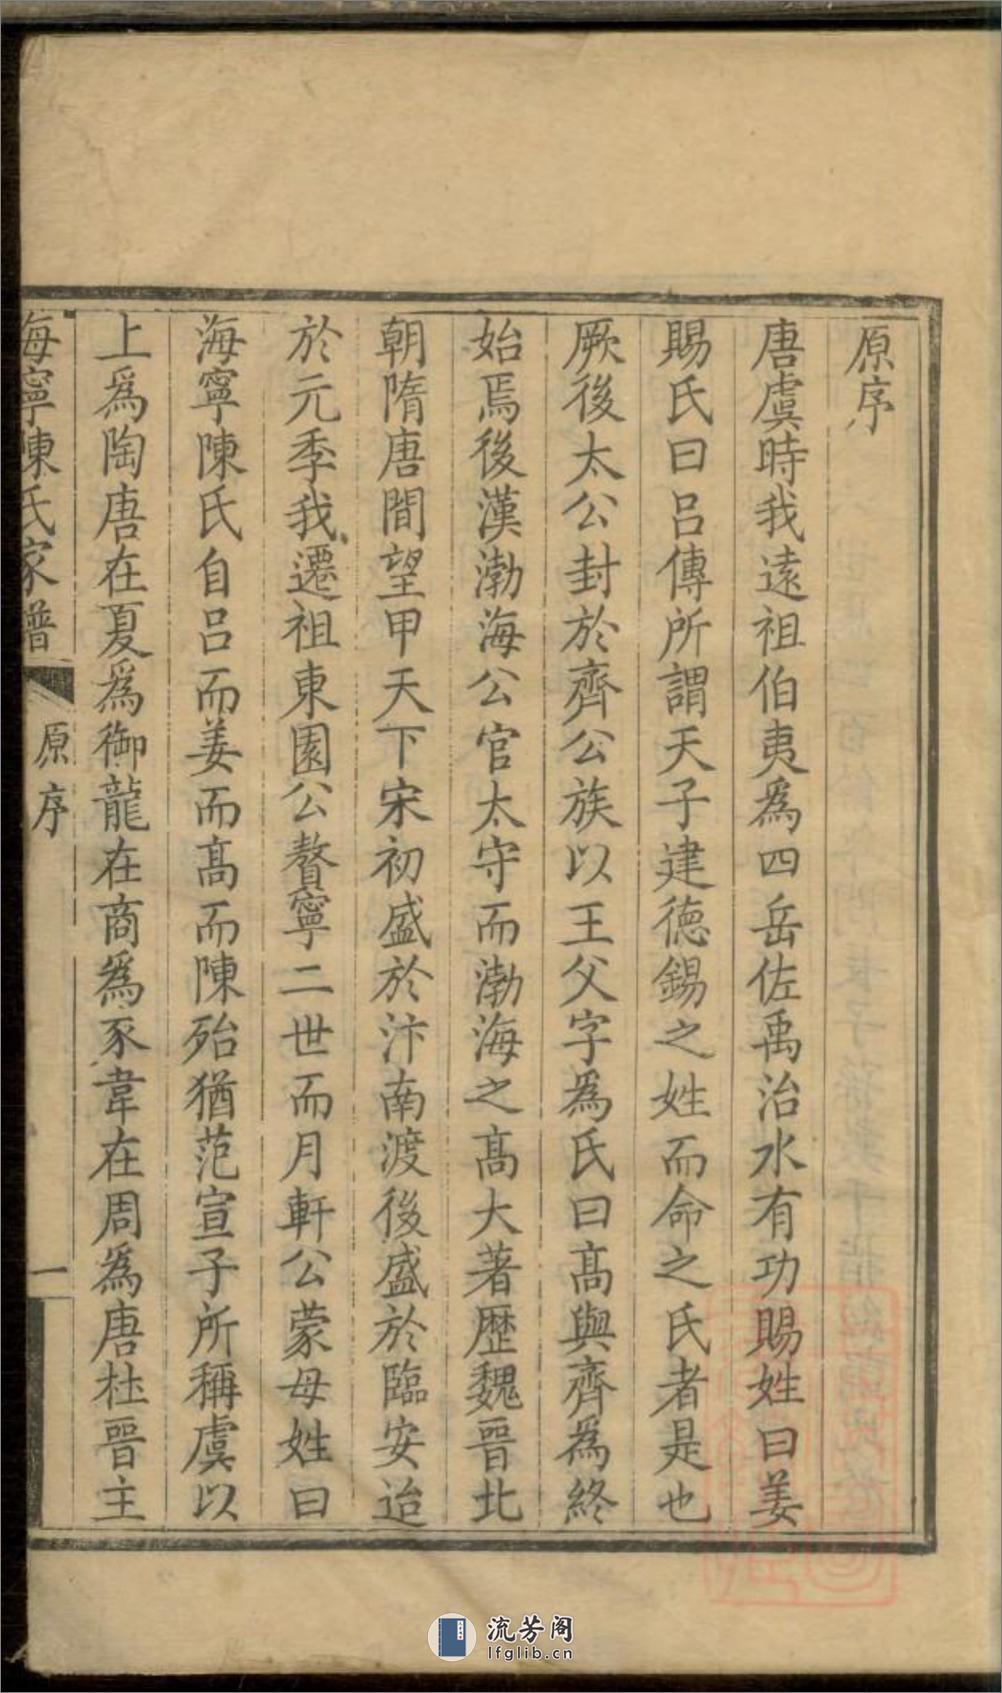 原序
唐虞時我遠祖伯夷爲四岳佐禹治水有功賜姓曰姜
賜氏曰呂傳所謂天子建德錫之姓而命之氏者是也
厥後太公封於齊公族以王父字爲氏曰高與齊爲終
始焉後漢渤海公官太守而渤海之高大著歴魏晉北
朝隋唐間望甲天下宋初盛於汴南渡後盛於臨安迨
於元季我遷祖東園公贅寧二世而月軒公蒙母姓曰
海寧陳氏自呂而姜而高而陳殆猶范宣子所稱虞以
上爲陶唐在夏爲御龍在商爲豕韋在周爲唐杜晉主
海寧陳氏家譜 原序 一
流芳阁
lfglib.cn